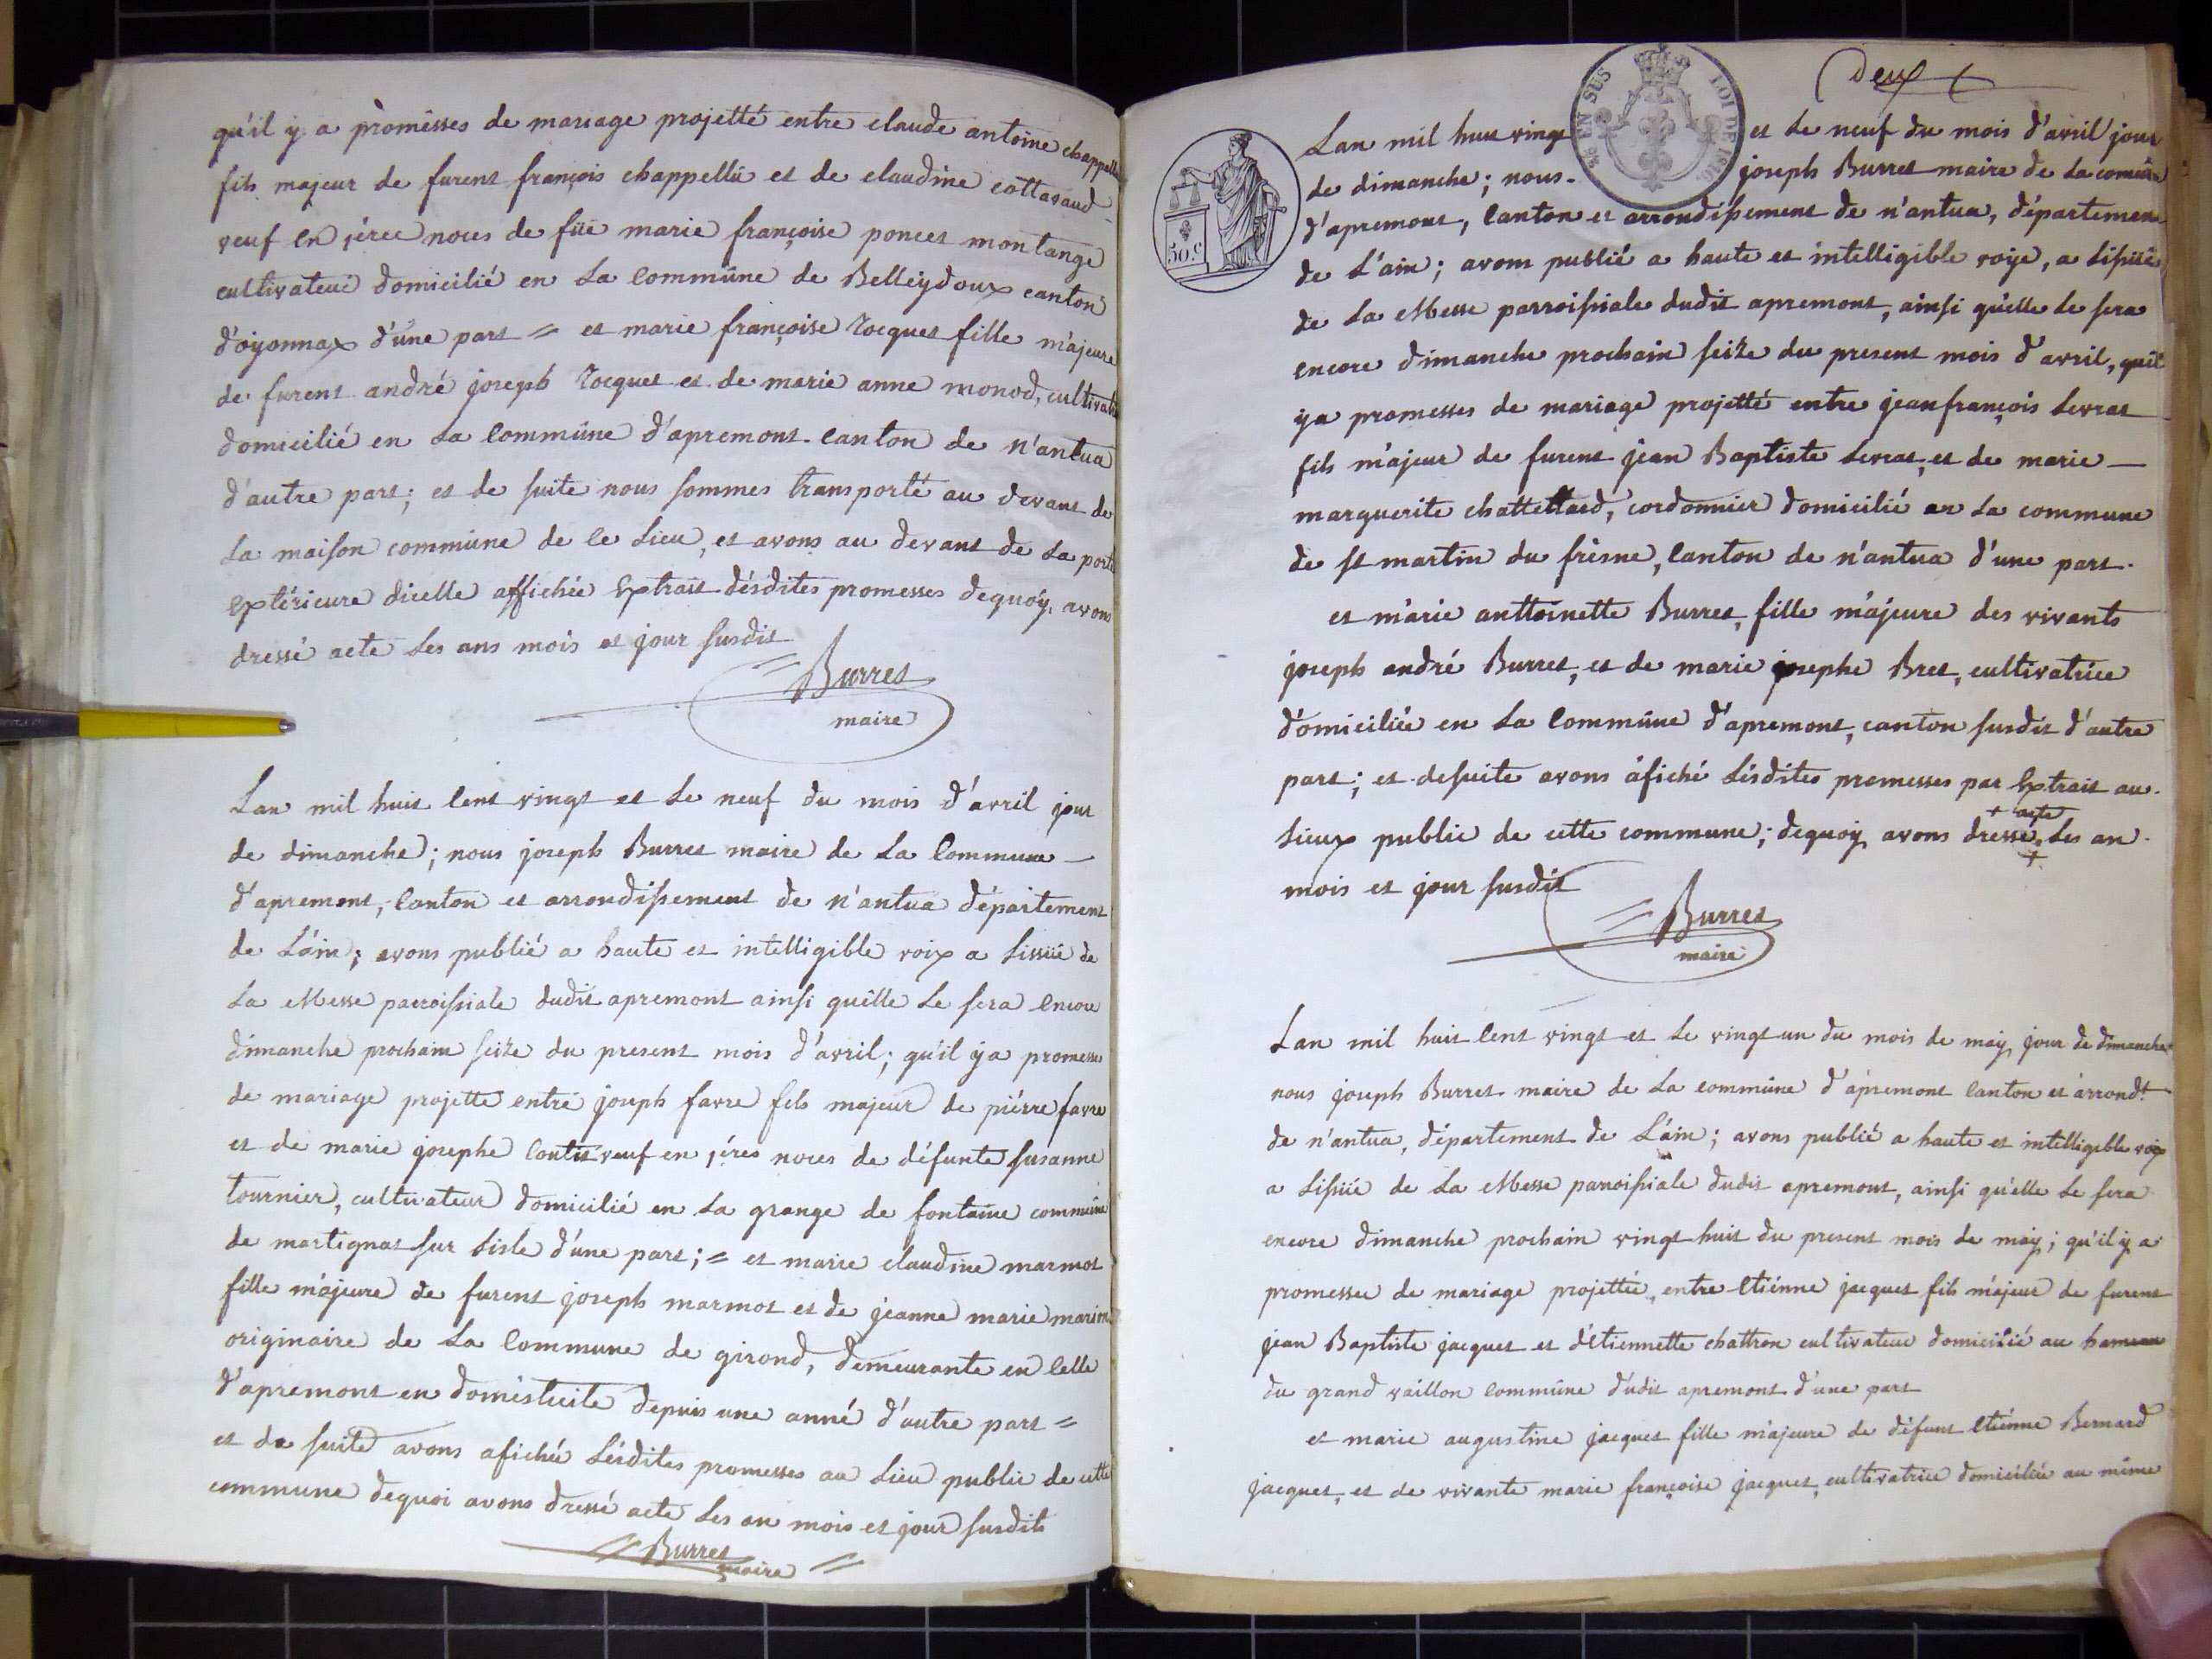 qu'il y a promesses de mariage projetté entre claude antoine chappell
fils majeur de furent françois chappellü et de claudine cottavaud
veuf en 1eres noces de füe marie françoise poncet montange
cultivateur domicilié en La Commüne de Belleÿdoux canton
d'oÿonnax d'üne part = et marie françoise Rocquet fille majeure
de furent andré joseph Rocquet et de marie anne monod, cultivatr
domicilié en La Commüne d'apremont. Canton de n'antua
d'autre part; et de suite nous sommes transporté au devant de
La maison commüne de Ce Lieu, et avons au devant de La porte
Extérieure dicelle affichée Extrait désdites promesses dequoÿ, avons
dressé acte Les ans mois et jour susdit
Burret
maire
Lan mil huit Cent vingt et Le neuf du mois d'avril jour
de dimanche; nous joseph Burret maire de La Commune
d'apremont, Canton et arrondissement de n'antua département
de L'ain; avons publié a haute et intelligible voix a Lissüe de
La Messe parroissiale dudit apremont ainsi quelle Le sera Encore
dimanche prochain seize du present mois d'avril; qu'il ÿa promesses
de mariage projetté entre joseph favre fils majeur de piérre favre
et de marie josephe Contet veuf en 1éres noces de défunte susanne
tournier, cultivateur domicilié en La grange de fontaine commüne
de martignat sur Lisle d'une part; = et marie claudine marmot
fille majeure de furent joseph marmot et de jeanne marie marin
originaire de La Commune de girond, demeurante en Celle
d'apremont en domesticite depuis une anné d'autre part =
et de suite avons afiché Lésdites promesses au Lieu public de cette
commune dequoi avons dressé acte Les an mois et jour susdits
Burret
maire
deux
EN SUS
LOI DE 1816
50.c
Lan mil huit vingt et Le neuf du mois d'avril jour
de dimanche; nous joseph Burret maire de La comüne
d'apremont, Canton et arrondissement de n'antua, département
de L'ain; avons publié a haute et intelligible voÿe, a Lissüe
de La Messe parroissiale dudit apremont, ainsi qu'elle Le sera
encore dimanche prochain seize du present mois d'avril, qu'il
ÿa promesses de mariage projetté entre jeanfrançois Levrat
fils majeur de furent jean Baptiste Levrat, et de marie
marguerite chattellard, cordonnier domicilié en La commune
de st martin du frêsne, Canton de n'antua d'une part.
et marie anttoinette Burret, fille majeure des vivants
joseph andré Burret, et de marie josephe Bret, cultivatrice
domiciliée en La Commüne d'apremont, canton susdit d'autre
part; et desuite avons afiché Lésdites promesses par Extrait au
Lieux public de cette commune; dequoÿ avons dressé + Les an
+ acte
mois et jour susdit
Burret
maire
Lan mil huit Cent vingt et Le vingt un du mois de maÿ, jour de dimanche
nous joseph Burret maire de La commüne d'apremont Canton et arrondt.
de n'antua, département de L'ain; avons publié a haute et intelligible voix
a Lissüe de La Messe parroissiale dudit apremont, ainsi qu'elle Le sera
encore dimanche prochain vingt huit du present mois de maÿ; qu'il ÿ a
promesses de mariage projettée, entre Etiénne jacquet fils majeur de furent
jean Baptiste jacquet et d'Etiennette chattron cultivateur domicilié au hameau
du grand vaillon Commüne dudit apremont d'une part
et marie augustine jacquet fille majeure de défunt Etiénne Bernard
jacquet, et de vivante marie françoise jacquet, cultivatrice domiciliée au même